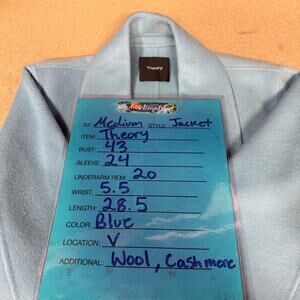 Theory
SZ: Medium STYLE: Jacket
ITEM: Theory
BUST: 43
SLEEVE: 24
UNDERARM HEM: 20
WRIST: 5.5
LENGTH: 28.5
COLOR: Blue
LOCATION: V
ADDITIONAL: Wool, Cashmere